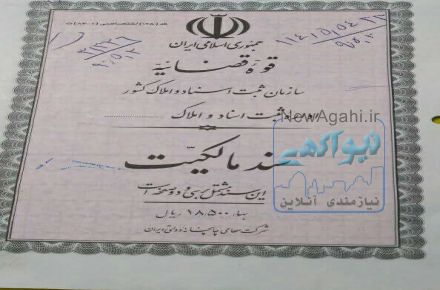 جمهوری اسلامی ایران
قوه قضائیه
سازمان ثبت اسناد و املاک کشور
اداره ثبت اسناد و املاک
سند مالکیت
این سند مشتمل بر سی و دو صفحه است
بهاء ۱۸.۵۰۰ ریال
شرکت سهامی چاپخانه دولتی ایران
NewAgahi.ir
نیوآگهی
نیازمندی آنلاین